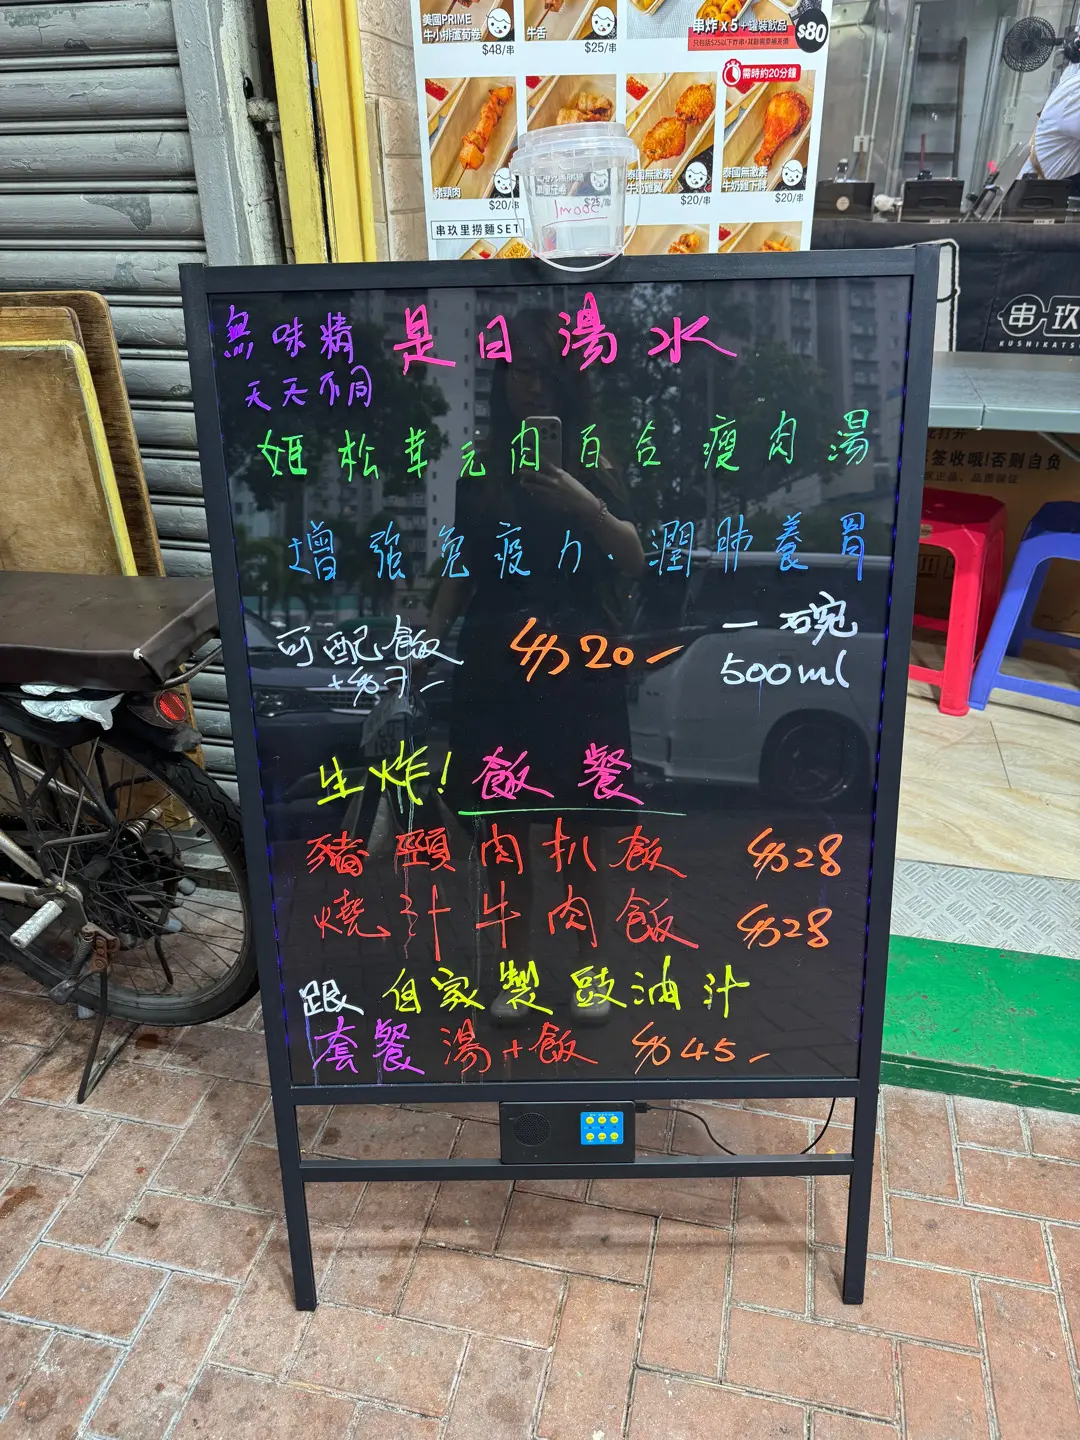 美國PRIME
牛小排蘆荀卷
$48/串
牛舌
$25/串
串炸 x 5 + 罐裝飲品
$80
豬頸肉
$20/串
$25/串
泰國無激素
牛奶雞翼
$20/串
需時約20分鐘
泰國無激素
牛奶雞下髀
$20/串
串玖里撈麵SET
串玖
KUSHIKATS
無味精 是日湯水
天天不同
姬松茸元肉百合瘦肉湯
增強免疫力、潤肺養胃
可配飯
+$7-
$20-
一碗
500ml
生炸！飯餐
豬頸肉扒飯 $28
燒汁牛肉飯 $28
跟 自家製豉油汁
套餐 湯+飯 $45-
签收哦!否则自负